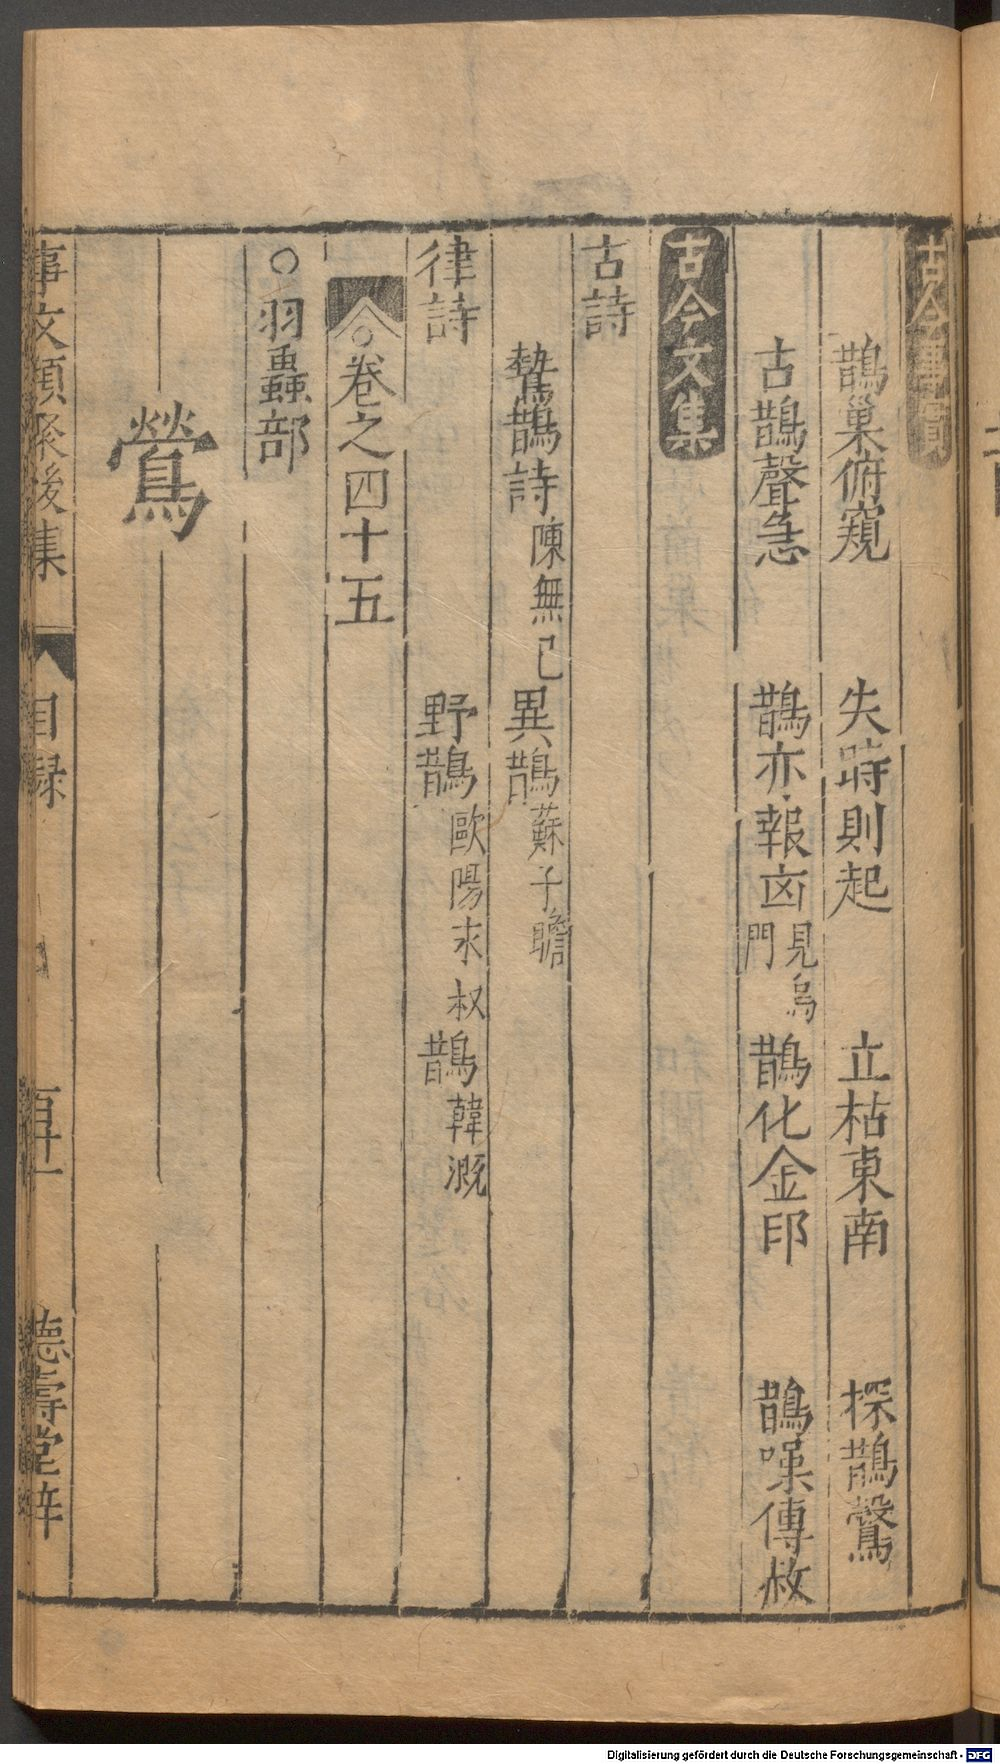 古今事實
鵲巢俯窺 失時則起 立枯東南 探鵲鷇
古鵲聲急 鵲亦報凶見烏門 鵲化金印 鵲噪傳赦
古今文集
古詩
鷙鵲詩陳無己 異鵲蘇子瞻
律詩 野鵲歐陽永叔 鵲韓溉
○卷之四十五
○羽蟲部
鶯
事文類聚後集 目錄 百十一 德壽堂梓
Digitalisierung gefördert durch die Deutsche Forschungsgemeinschaft - DFG